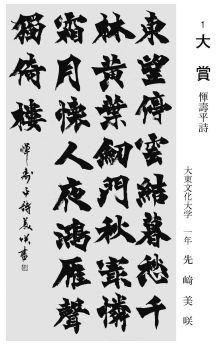 1 大賞 惲壽平詩
大東文化大学 一年 先崎美咲
東望停雲結暮愁千
林黄葉劒門秋最憐
霜月懷人夜鴻雁聲
獨倚樓 惲壽平詩 美咲書